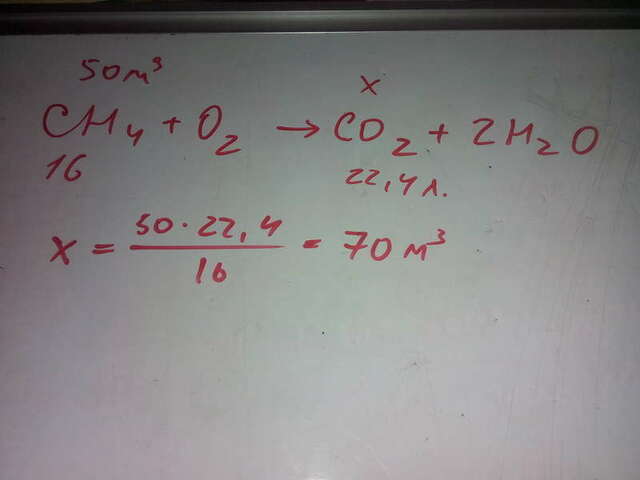 50 м³
x
CH₄ + O₂ → CO₂ + 2H₂O
16
22,4 л.
x = 50 · 22,4 / 16 = 70 м³